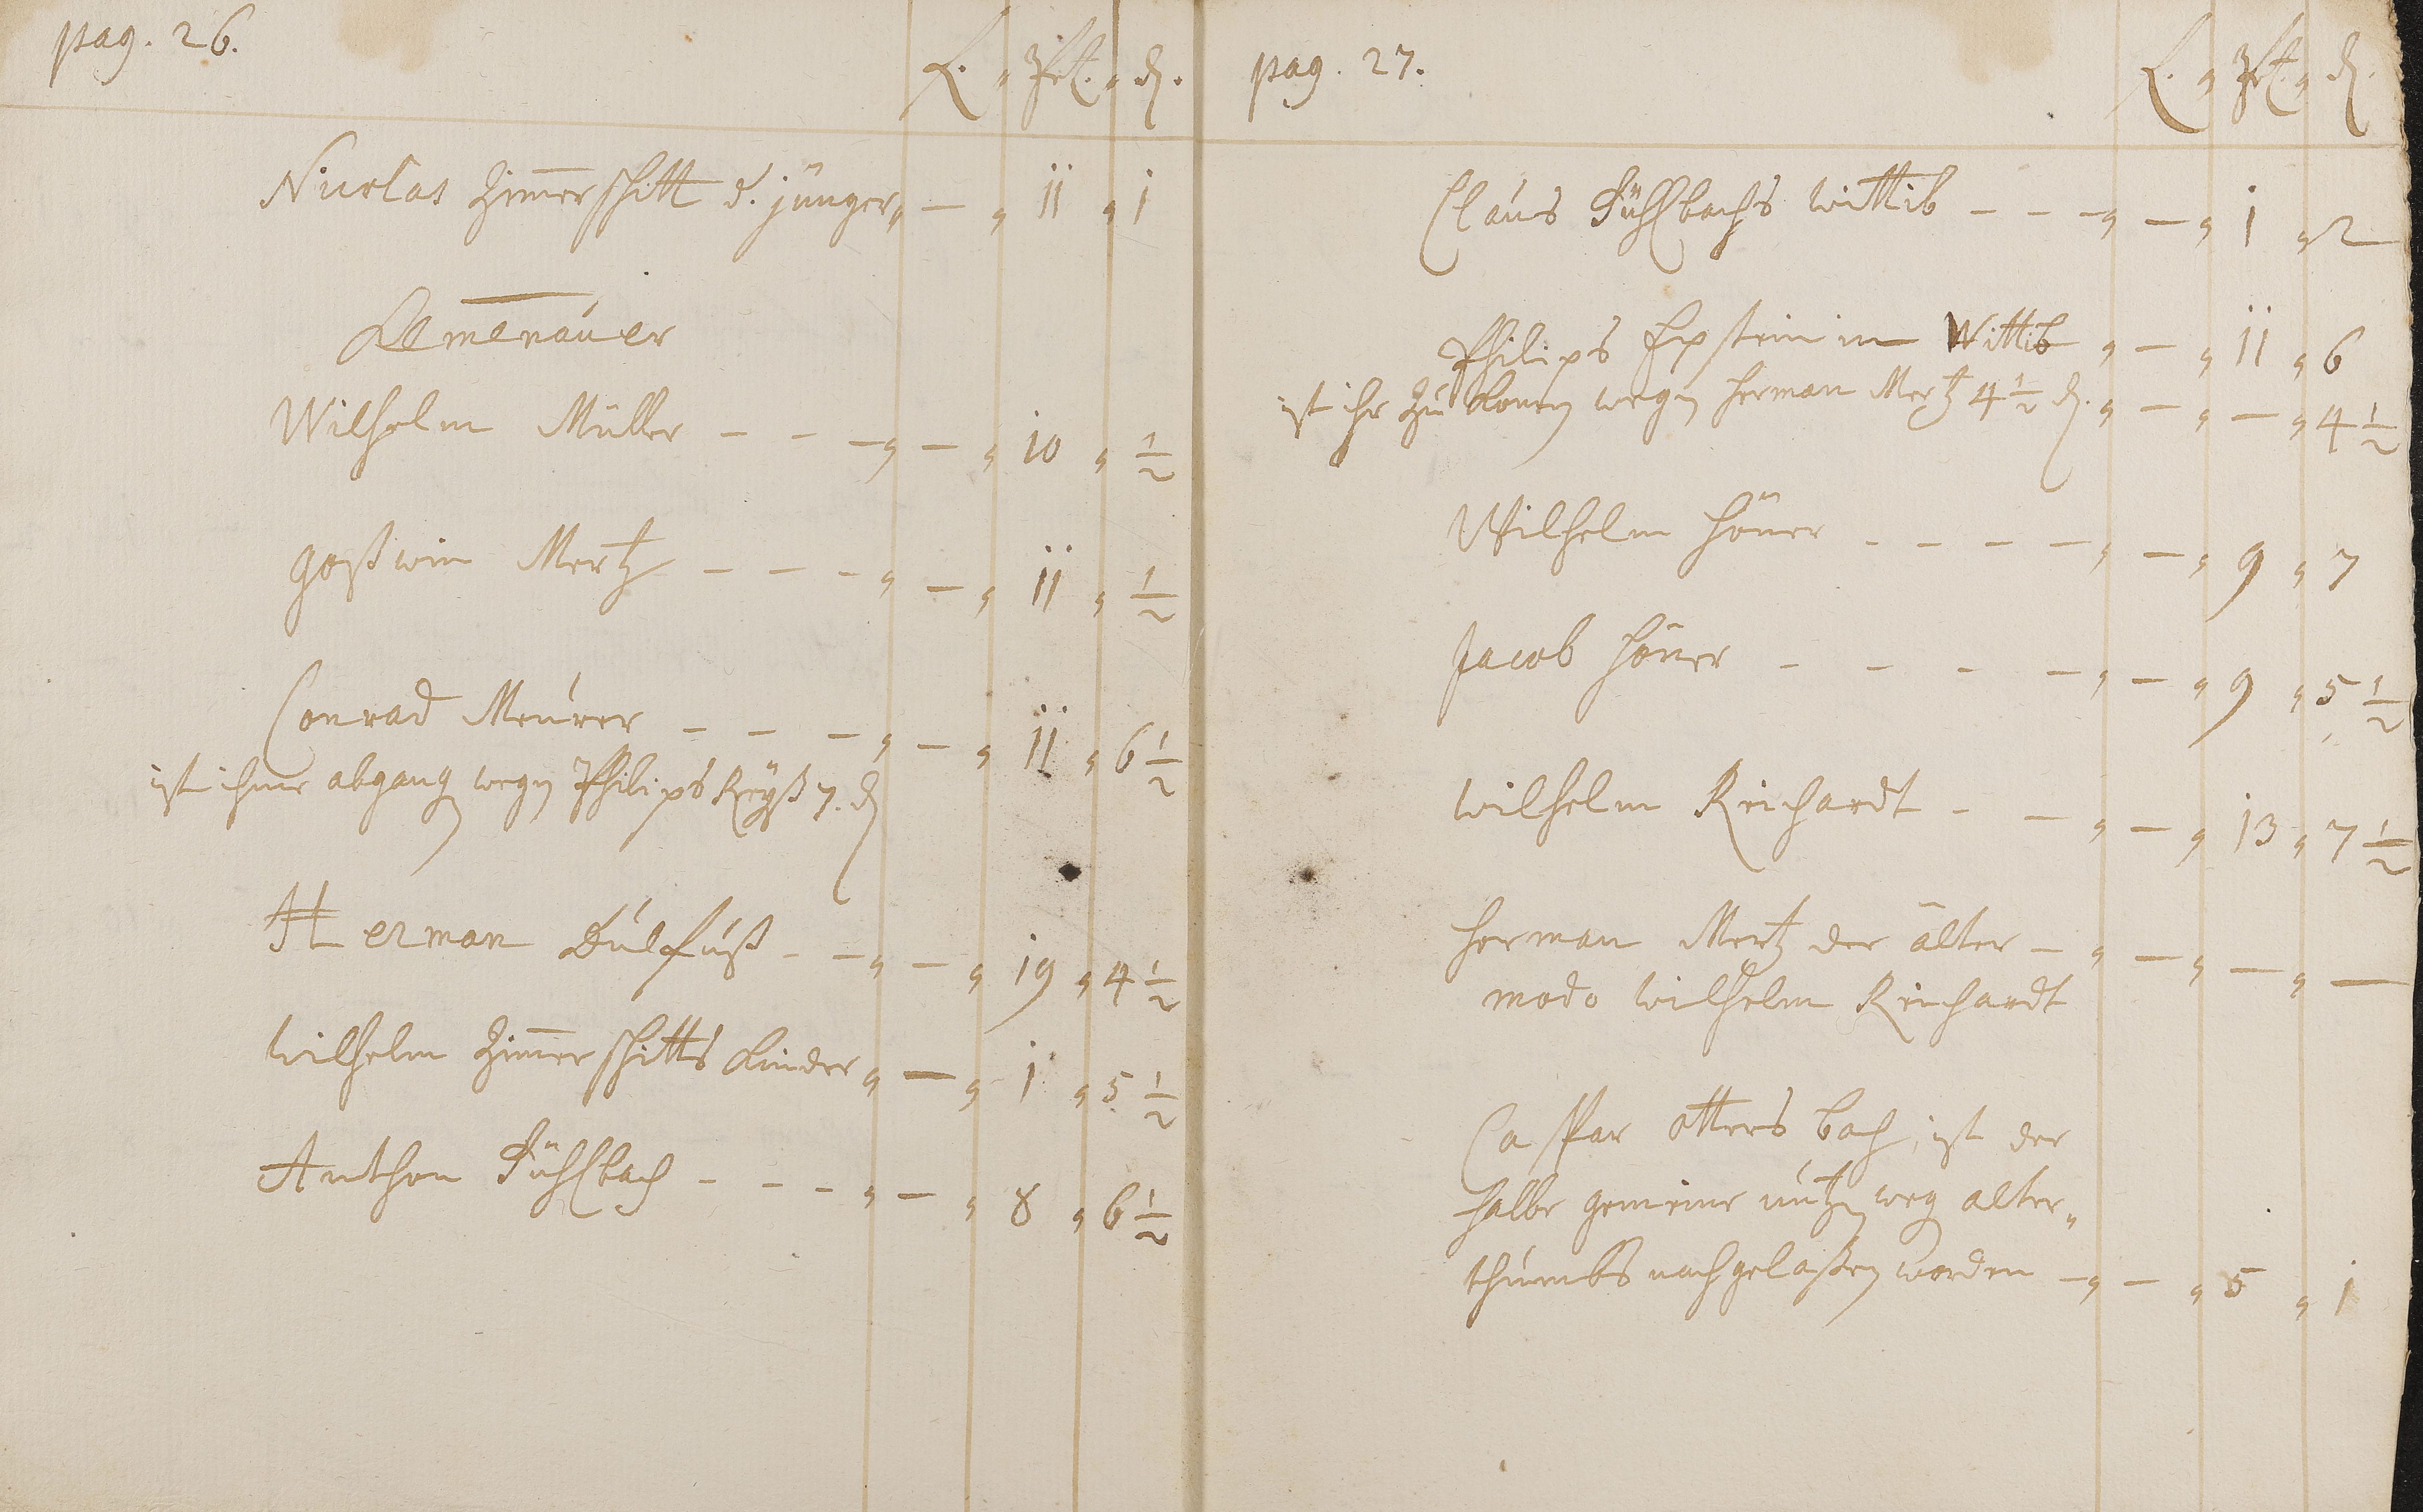 pag. 26.
Nicolas Zim̅erschitt d. jünger „ — „ 11 „ 1
Almenauer
Wilhelm Müller - - - „ — „ 10 „ 1/2
Goßwin Mertz - - - „ — „ 11 „ 1/2
Conrad Meurer - - - „ — „ 11 „ 6 1/2
ist ihme abgang wegen Philips Reyß 7. d
Herman Dulfuß - - „ — „ 19 „ 4 1/2
Wilhelm Zim̅erschitts Kinder „ — „ 1 „ 5 1/2
Anthon Sühlbach - - - „ — „ 8 „ 6 1/2
pag. 27.
Claus Sühlbachs Wittib - - - „ — „ 1 „ 2
Philips Epstein Wittib „ — „ 11 „ 6
ist ihr zu komen wegen Herman Mertz 4 1/2 d. „ — „ — „ 4 1/2
Wilhelm Höner - - - - „ — „ 9 „ 7
Jacob Höner - - - - „ — „ 9 „ 5 1/2
Wilhelm Reichardt - - „ — „ 13 „ 7 1/2
Herman Mertz der älter - „ — „ — „ —
modo Wilhelm Reichardt
Caspar Ottersbach, ist der
halbe gemeine nutzen weg alter„
thumbs nachgelaßen worden - „ — „ 5 „ 1